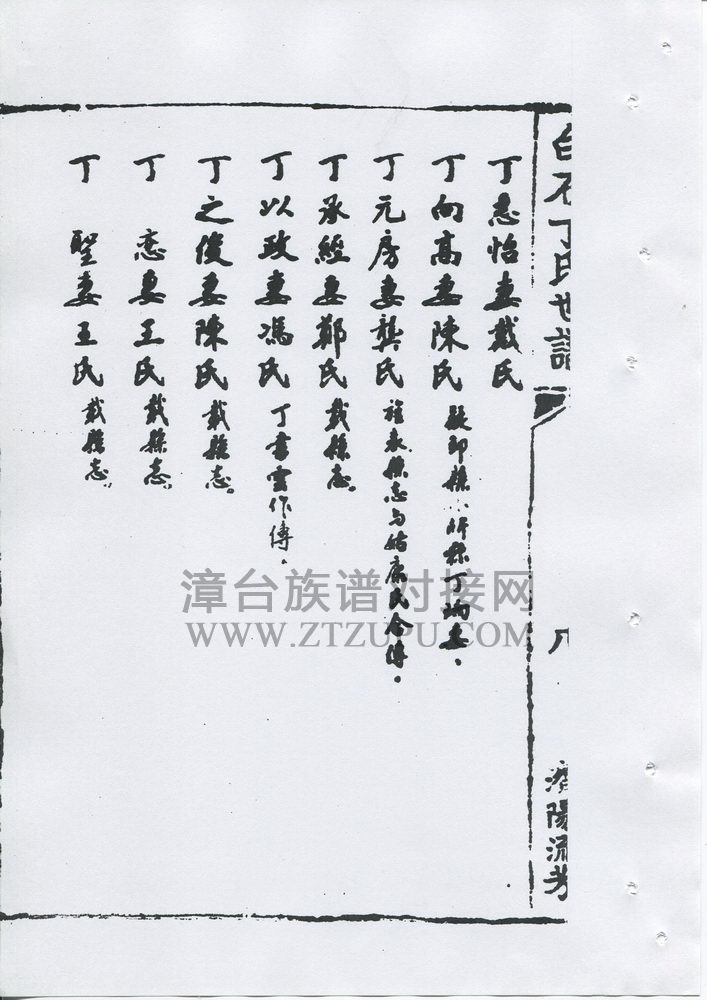 白石丁氏世譜
八
濟陽流芳
丁惠怡妻戴氏
丁向高妻陳氏 疑即縣 所採丁珣妻。
丁元房妻龔氏 縣志與姑康氏合傳。
丁承經妻鄭氏 載縣志。
丁以政妻馮氏 丁書雲作傳。
丁之俊妻陳氏 載縣志。
丁 戀妻王氏 載縣志。
丁 聖妻王氏 載縣志。
漳台族谱对接网
WWW.ZTZUPU.COM